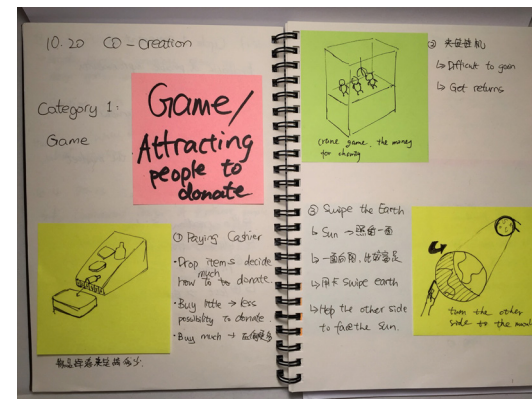 10.20 CO-Creation
Category 1:
Game
Game/
Attracting
people to
donate
① Paying Cashier
·Drop items decide
much
how to donate.
·Buy little → less
possibility to donate
·Buy much →
crane game, the money
for charity
② 夹娃娃机
↳ Difficult to gain
↳ Get returns
③ Swipe the Earth
↳ Sun → 照留一面
↳ 用卡 Swipe earth
↳ Help the other side
to face the sun.
turn the other
side to the